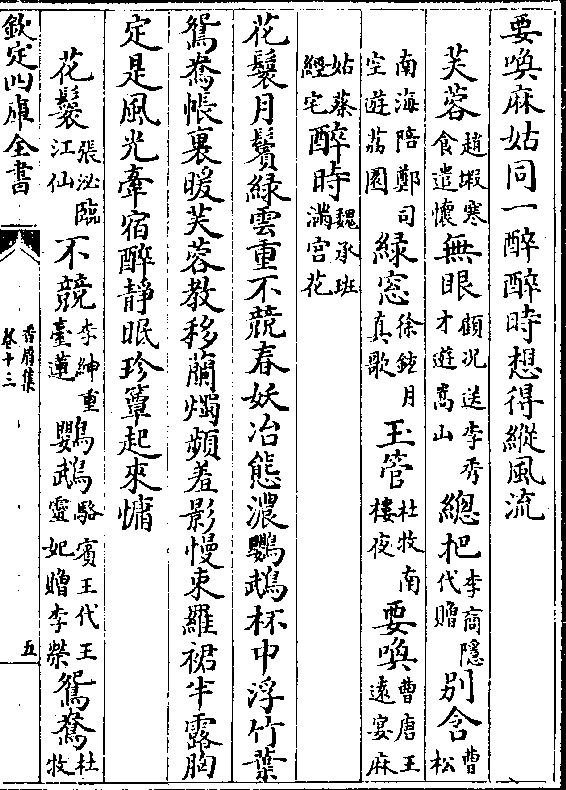 要喚麻姑同一醉醉時想得縱風流
芙蓉趙嘏寒食遣懷無眼顧况送李秀才遊嵩山總把李商隱代贈別含曹松
南海陪鄭司空遊荔園緑窓徐鉉月真歌玉管杜牧南樓夜要喚曹唐王遠宴麻
姑蔡經宅醉時魏承班滿宫花
花鬟月鬢緑雲重不競春妖冶態濃鸚鵡杯中浮竹葉
鴛鴦帳裏暖芙蓉教移蘭燭頻羞影慢束羅裙半露胸
定是風光牽宿醉靜眠珍簟起來慵
花鬟張泌臨江仙不競李紳重臺蓮鸚鵡駱賓王代王靈妃贈李榮鴛鴦杜牧
欽定四庫全書
香屑集
卷十三
五